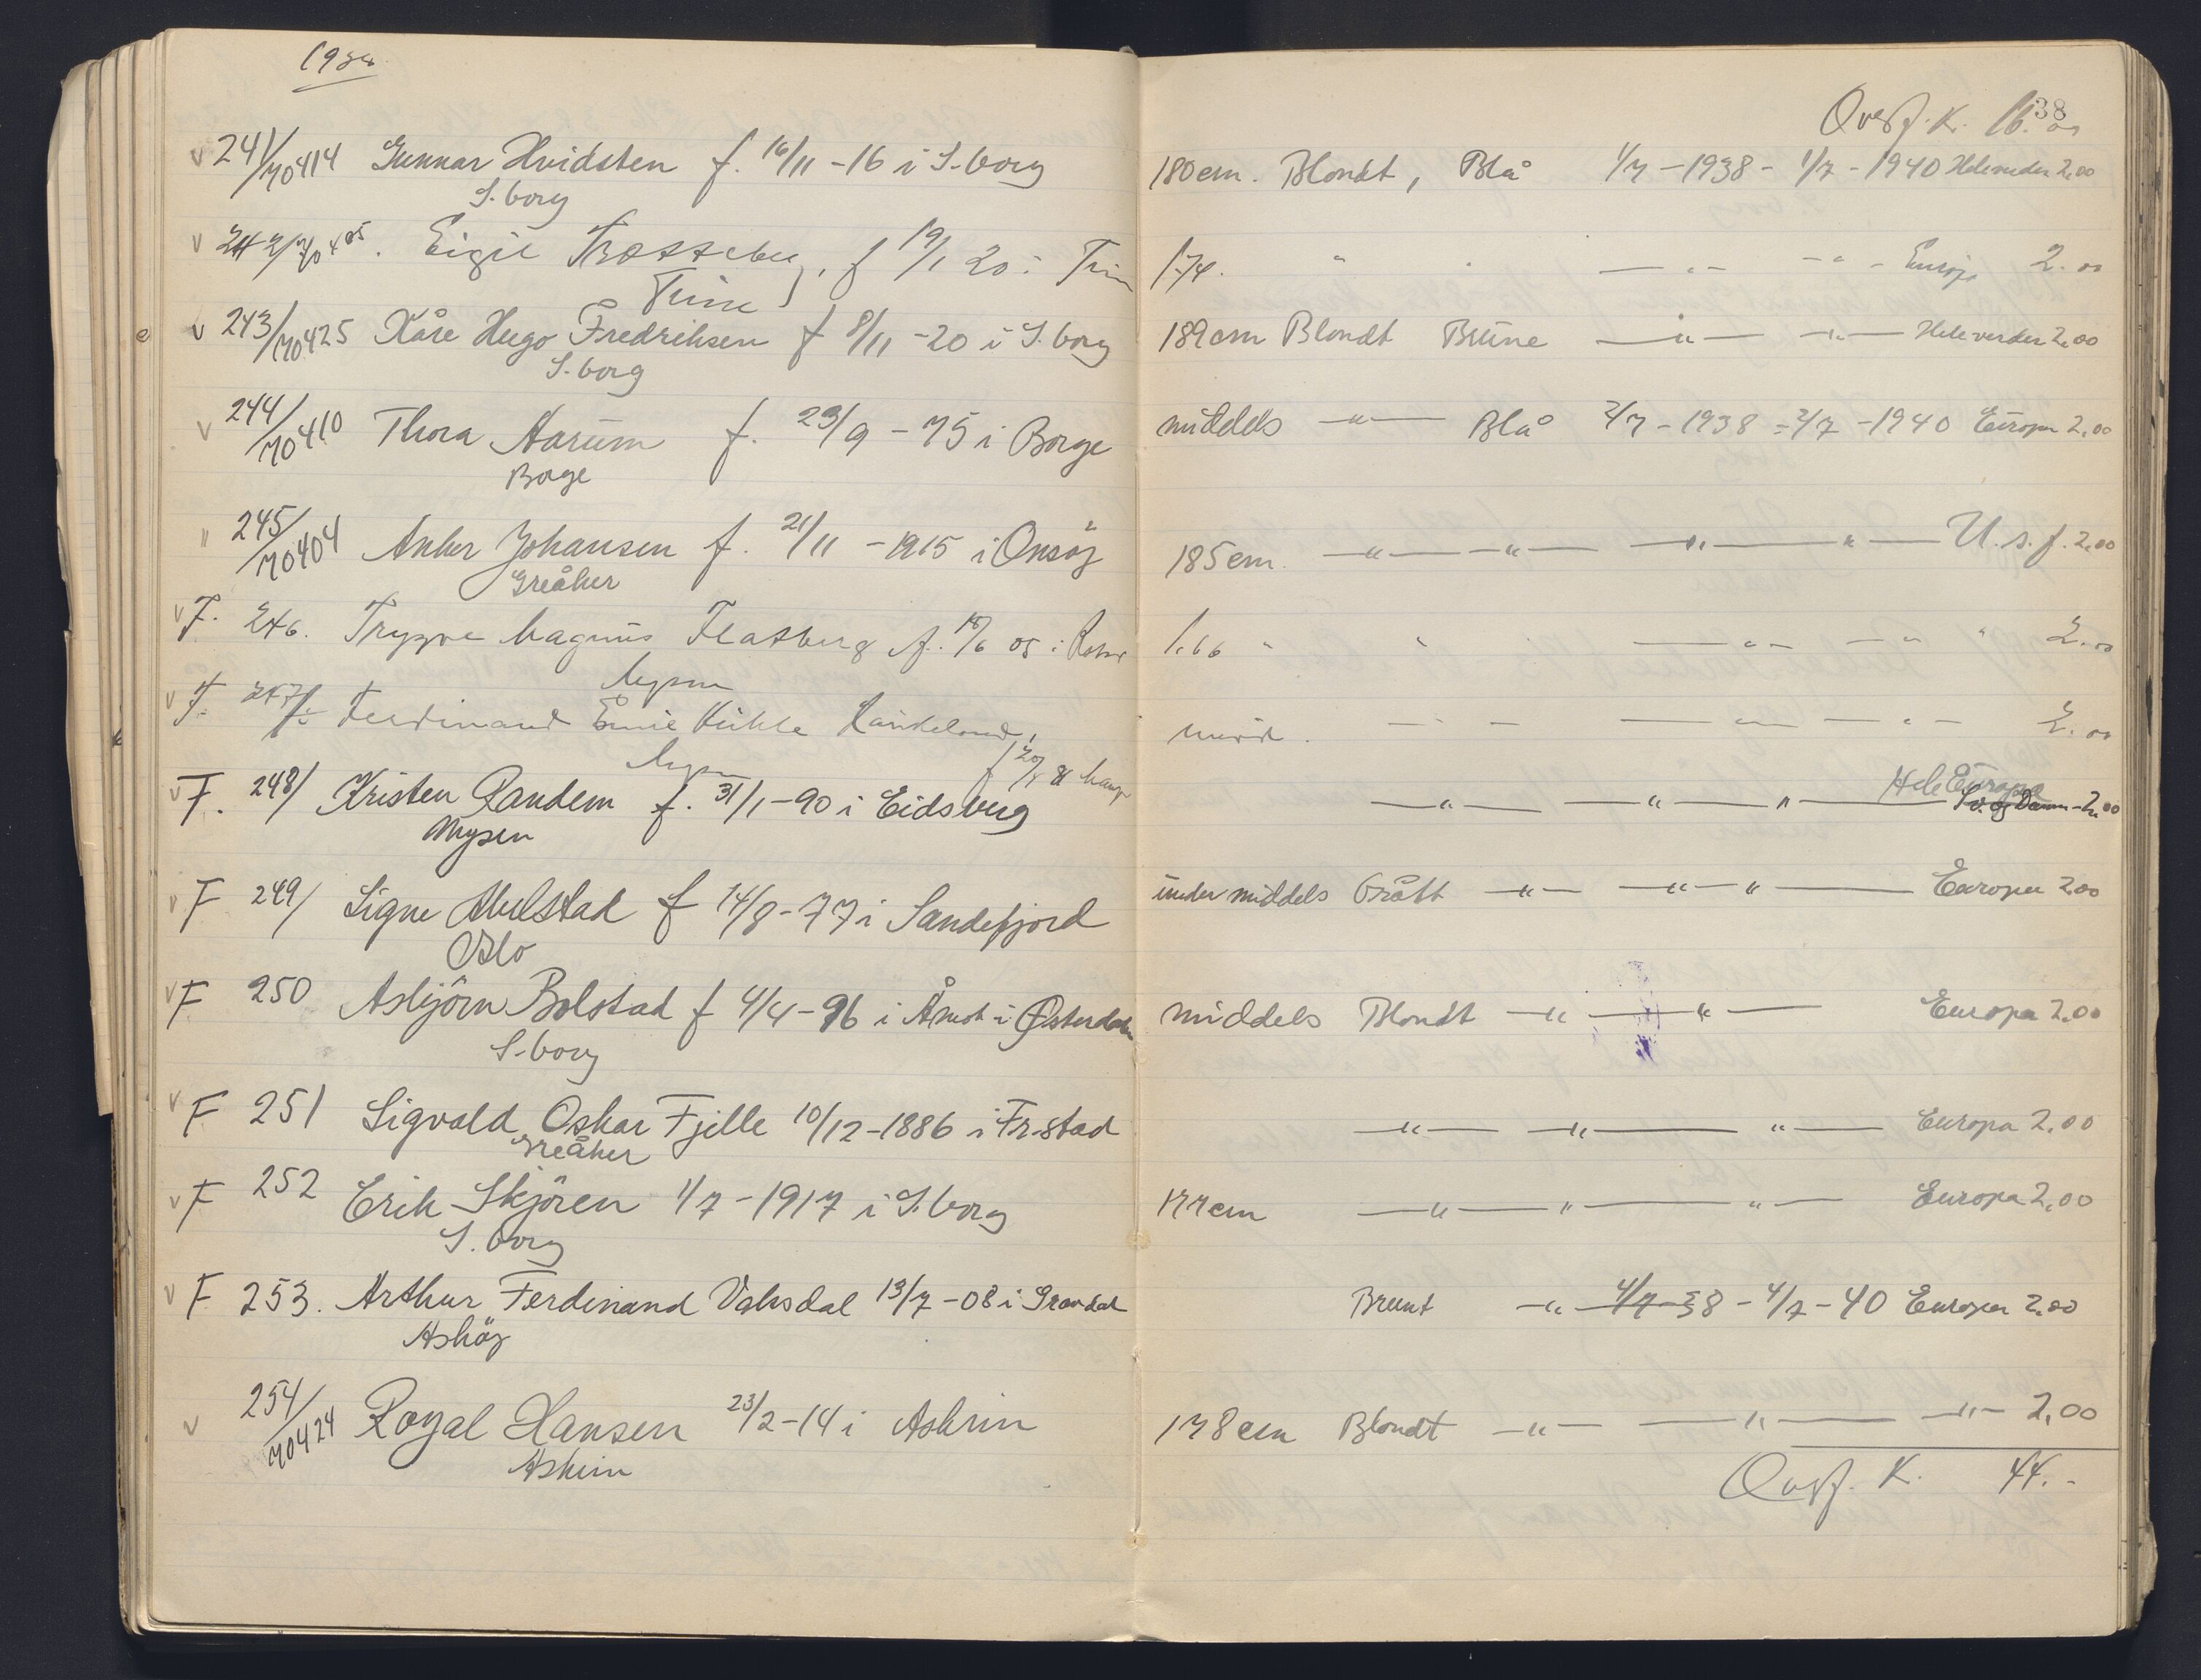 38
Overf. K. 16.00
241/70414 Gunnar Hvidsten f. 16/11 -16 i S-borg 180 cm. Blondt, Blå 1/7 -1938 - 1/7 -1940 Hele verden 2,00
S. borg
242/70405. Eigil f 19/1 20 i 1.74. " — " — — " — Europa 2.00
243/70425 Kåre Hugo Fredriksen f 8/11 -20 i S. borg 189 cm Blondt Brune — " — — " — Hele verden 2,00
S. borg
244/70410 Thora Aarum f. 23/9 -75 i Borge middels — " — Blå 2/7 - 1938 - 2/7 -1940 Europa 2,00
Borge
245/70404 Anker Johansen f. 21/11 -1915 i Onsöy 185 cm. — " — " — — " — " — U. s. f. 2,00
Greåker
F. 246. Trygve Magnus Flatberg f. 05 i 1.66 " " — " — — " — " 2.00
Mysen
F. 247 Ferdinand — — — " — — " — 2.00
Mysen
F. 248/ Kristen Randem f. 31/1 -90 i Eidsberg — " — — " — " — Sv. og Danm 2,00
Hele Europa
Mysen
F 249/ Signe f 14/8 -77 i Sandefjord under middels Grått — " — — " — " — Europa 2,00
Oslo
F 250 Asbjörn Bolstad f 4/4 -96 i Åmot i Østerdalen middels Blondt — " — " — Europa 2,00
S-borg
F 251 Sigvald Oskar Fjelle 10/12 -1886 i Fr-stad — " — " — " — Europa 2,00
Greåker
F 252 Erik Skjören 1/7 -1917 i S. borg 177 cm — " — " — " — Europa 2,00
S. borg
F 253. Arthur Ferdinand Vaksdal 13/7 -08 i Brunt — " — 4/7 -38 - 4/7 -40 Europa 2,00
Asköy
254/70424 Royal Hansen 23/2 -14 i Askim 178 cm Blondt — " — — " — — " — 2,00
Askim
Overf. K. 44. -